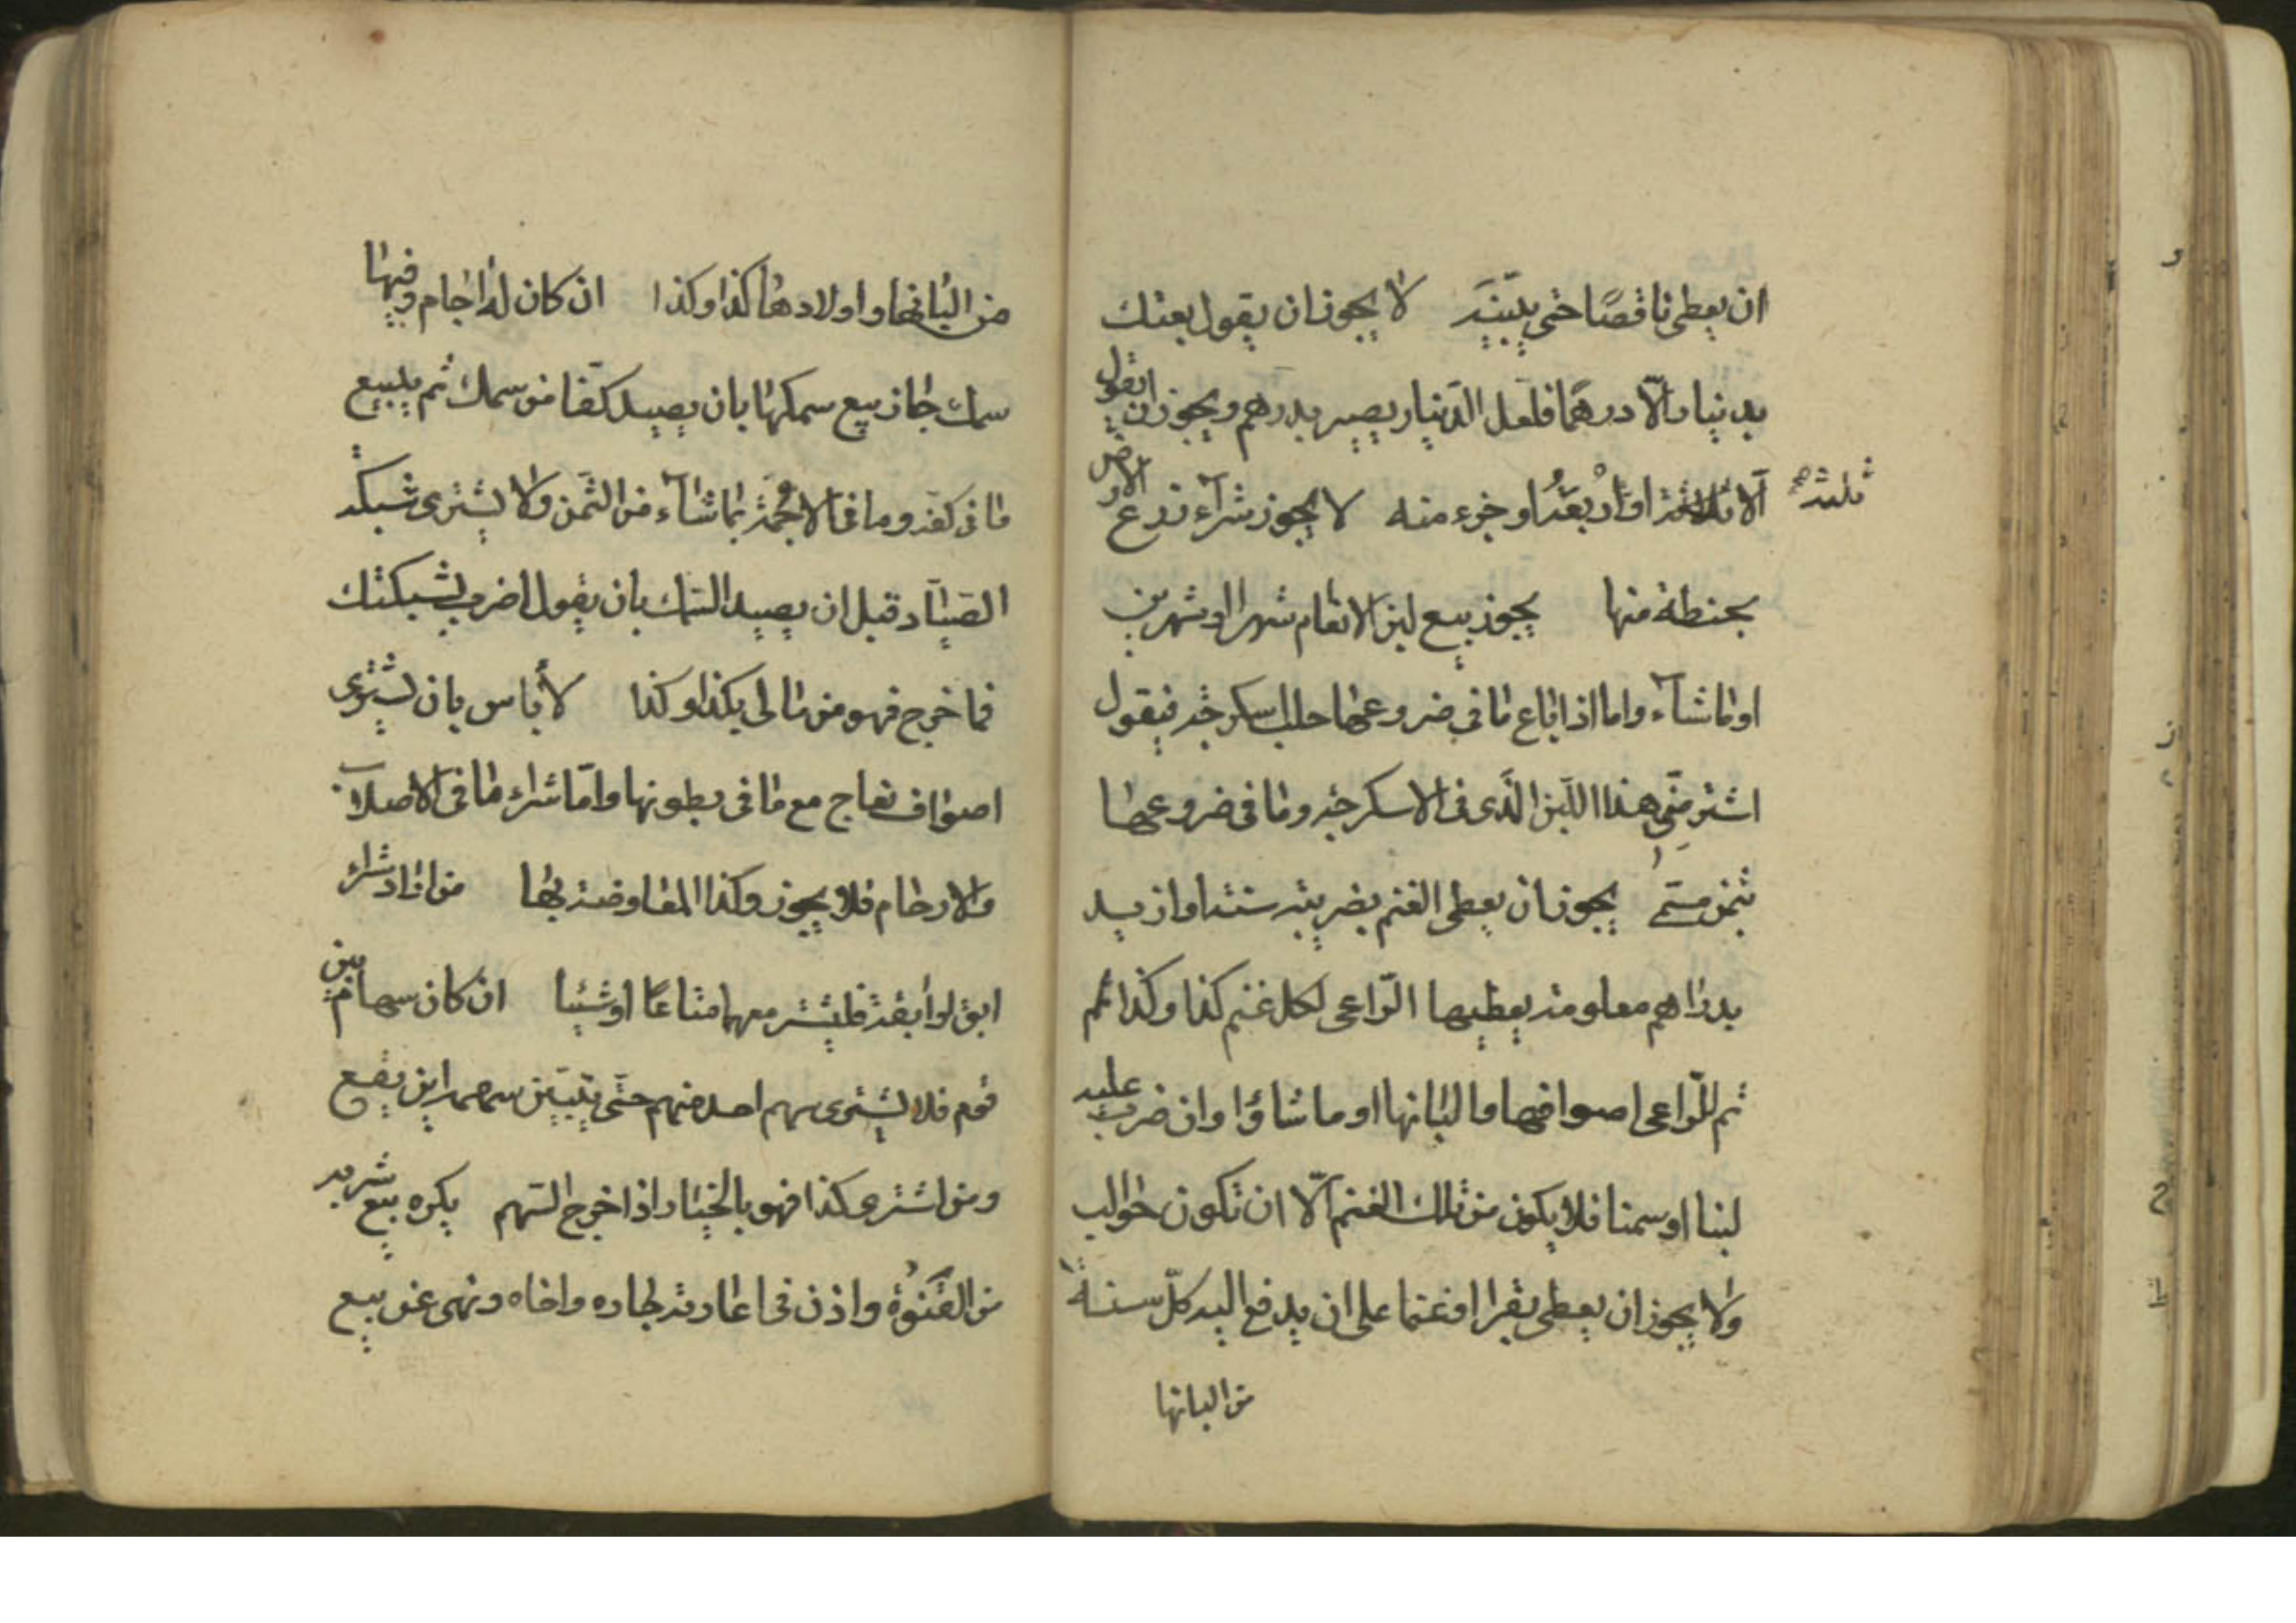 ان يعطى ناقصًا حتى يبيّنه لا يجوز ان يقول بعتك
بدينار الّا درهمًا فلعل الدّينار يصير بدرهم ويجوز ان يقول
الّا ثلثه او اربعة او جزء منه لا يجوز شراء زرع الارض
ثلثه صح
بحنطة منها يجوز بيع لبن الانعام شهرا او شهرين
او ما شاء واما اذا باع ما في ضروعها حلب سكرجه فيقول
اشتر منّي هذا اللّبن الّذى فى الاسكرجه وما فى ضروعها
بثمن مسمّى يجوز ان يعطى الغنم بضريبته سنة او ازيد
بدراهم معلومة يعطيها الرّاعى لكل غنم كذا وكذا ثم
ثم للرّاعى اصوافها والبانها او ما شاؤا وان ضرب عليه
لبنا او سمنا فلا يكون من تلك الغنم الّا ان تكون حوالب
ولا يجوز ان يعطى بقرا او غنما على ان يدفع اليه كلّ سنة
من البانها
من البانها واولادها كذا وكذا ان كان له اجام وفيها
سمك جاز بيع سمكها بان يصيد كفّا من سمك ثم يبيع
ما فى كفه وما فى الاجمة بما شاء من الثمن ولا يشترى شبكة
الصيّاد قبل ان يصيد السّمك بان يقول اضرب بشبكتك
فما خرج فهو من مالى بكذا وكذا لا بأس بان يشترى
اصواف نعاج مع ما فى بطونها وامّا شراء ما فى الاصلاب
والارحام فلا يجوز وكذا المفاوضة بها من اراد شراء
ابق او أبقة فليشتر معها متاعًا او شيئا ان كان سهام بين
قوم فلا يشترى سهم احد منهم حتّى يبيّن سهمه اين يقع
ومن اشترى كذا فهو بالخيار اذا خرج السّهم يكره بيع شربه
من القنوة واذن فى اعارته لجاره واخاه ونهى عن بيع